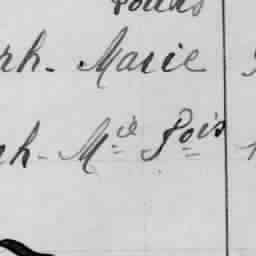 rh. Marie
rh. Mie Pois